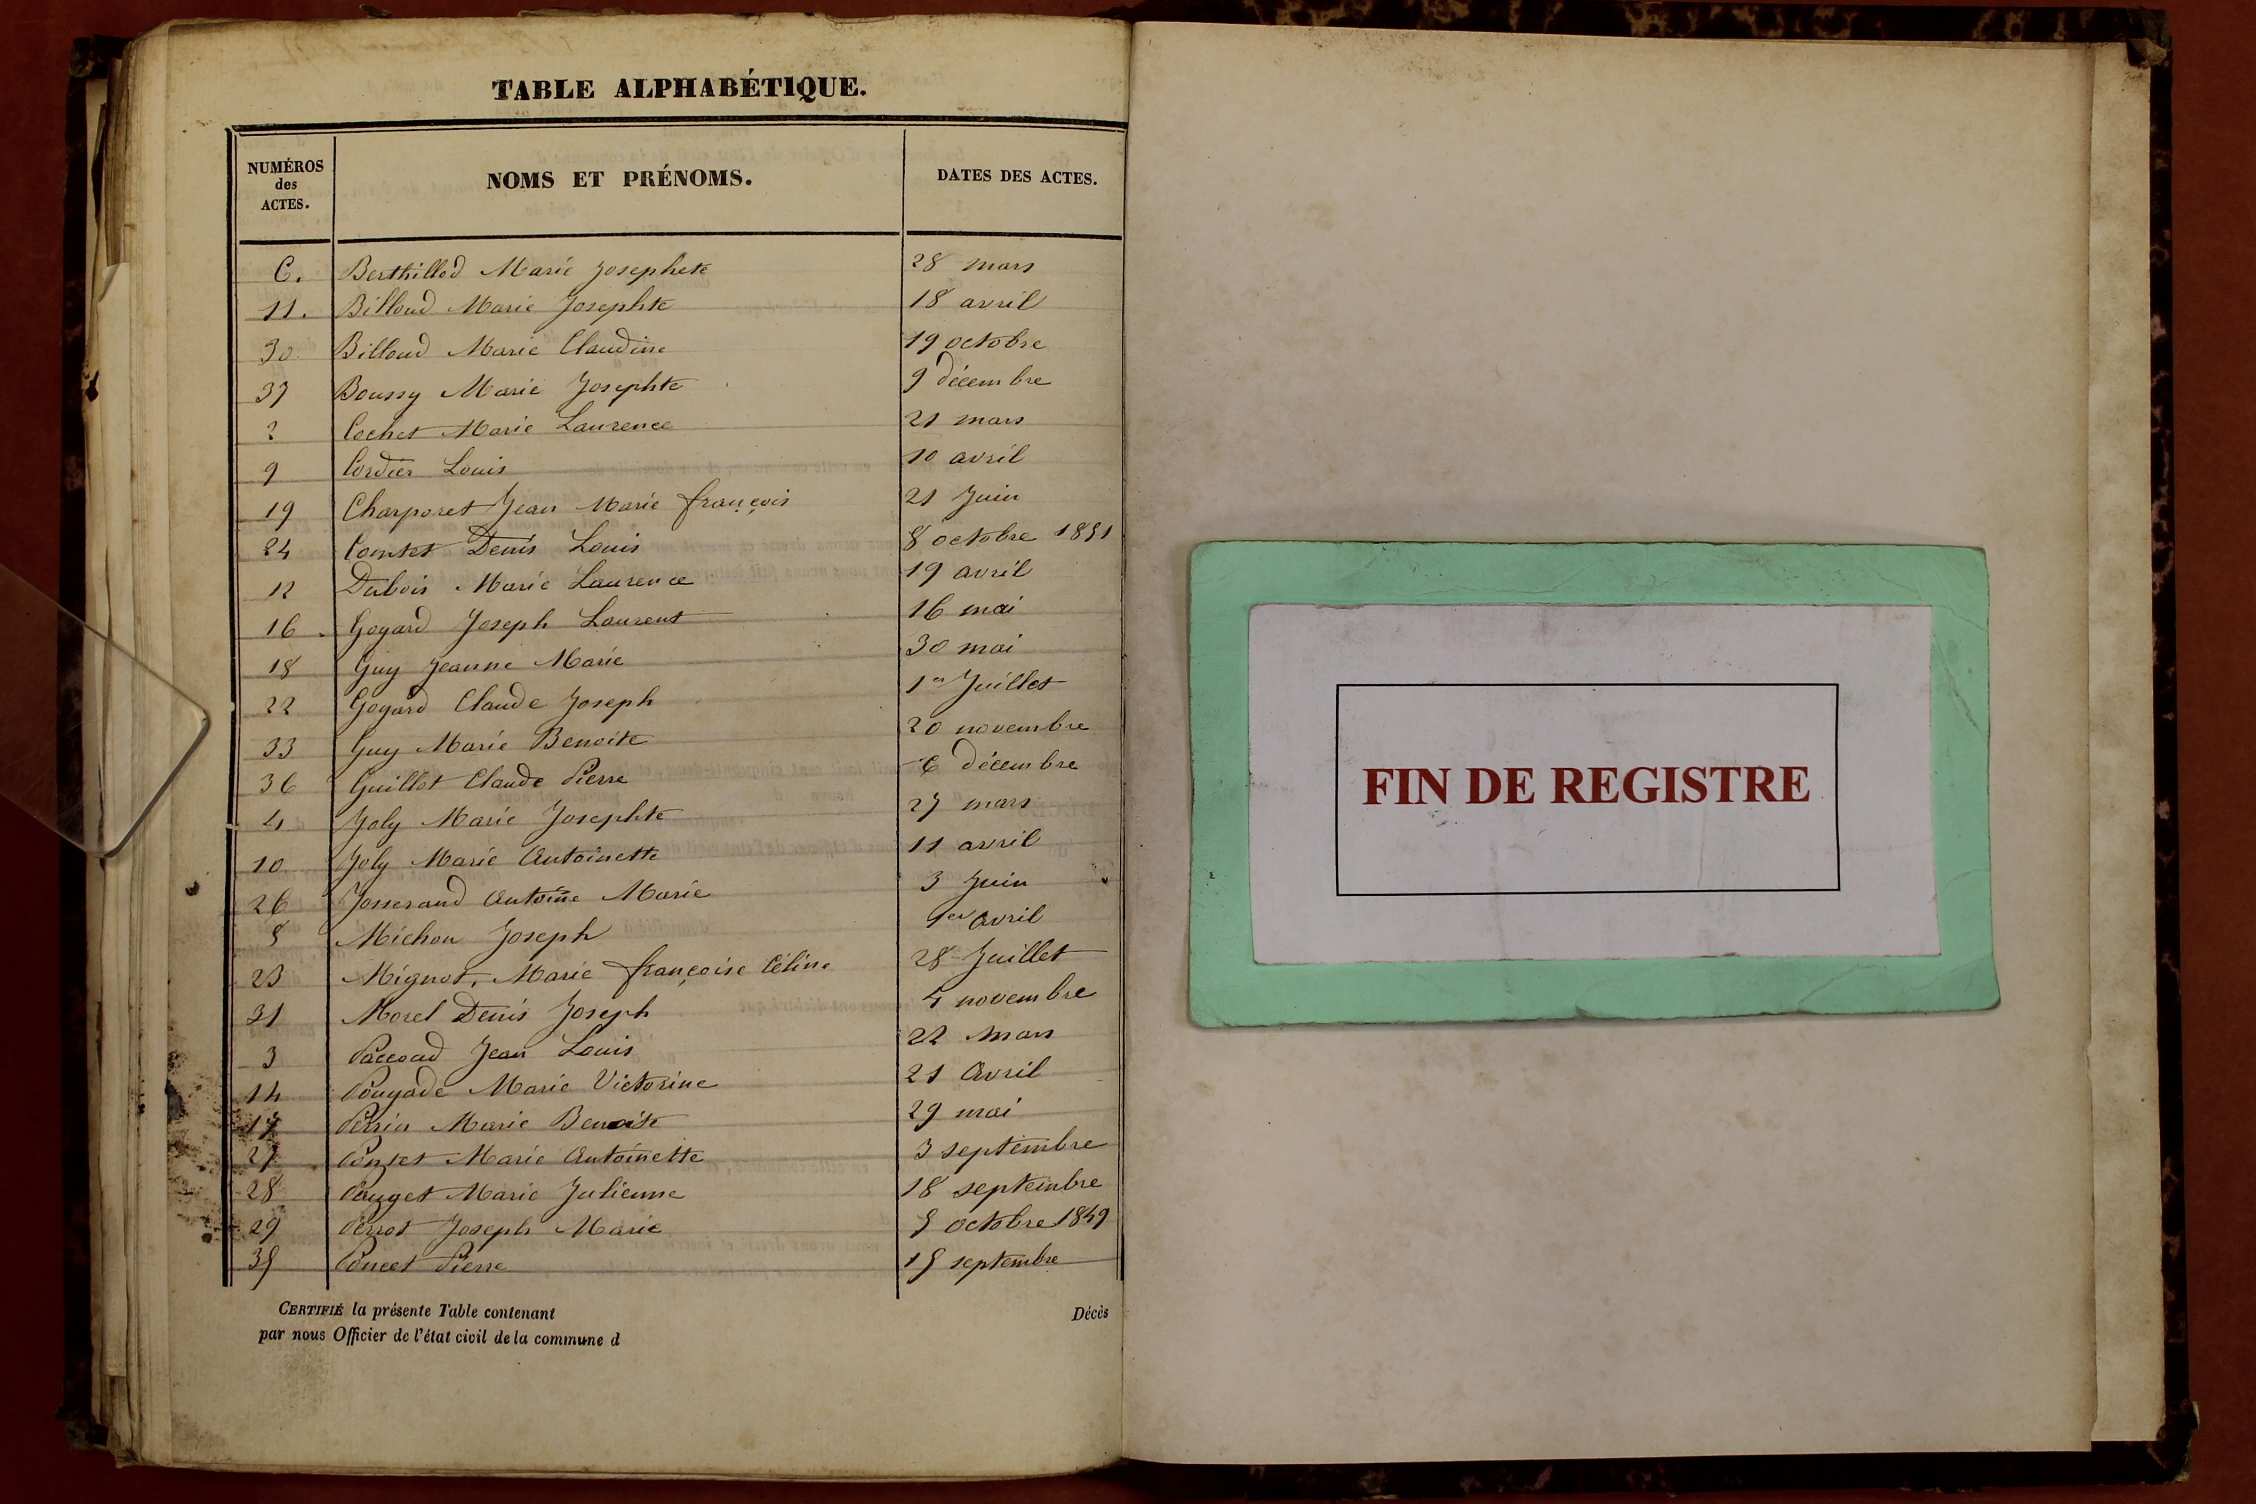 TABLE ALPHABÉTIQUE.
NUMÉROS des ACTES. NOMS ET PRÉNOMS. DATES DES ACTES.
6. Berthillod Marie Josephete 28 mars
11. Billoud Marie Josephte 18 avril
30 Billoud Marie Claudine 19 octobre
37 Boussy Marie Josephte 9 décembre
2 Cochet Marie Laurence 21 mars
9 Cordier Louis 10 avril
19 Charporet Jean Marie françois 21 Juin
24 Comtet Denis Louis 8 octobre 1851
12 Dubois Marie Laurence 19 avril
16 Goyard Joseph Laurent 16 mai
18 Guy Jeanne Marie 30 mai
22 Goyard Claude Joseph 1er Juillet
33 Guy Marie Benoite 20 novembre
36 Guillot Claude Pierre 6 décembre
4 Joly Marie Josephte 27 mars
10 Joly Marie Antoinette 11 avril
26 Josserand Antoine Marie 3 Juin
8 Michon Joseph 1er avril
23 Mignot, Marie françoise Céline 28 Juillet
31 Morel Denis Joseph 4 novembre
3 Paccoud Jean Louis 22 mars
14 Pougade Marie Victorine 21 Avril
17 Perrin Marie Benoite 29 mai
27 Marie Antoinette 3 septembre
28 Marie Julienne 18 septembre
29 Perrot Joseph Marie 5 octobre 1849
35 Poncet Pierre 15 septembre
CERTIFIÉ la présente Table contenant Décès
par nous Officier de l'état civil de la commune d
FIN DE REGISTRE